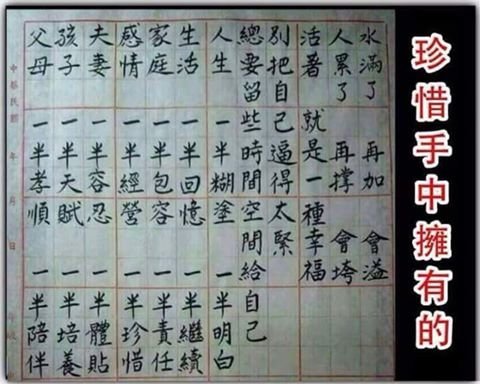 珍惜手中擁有的
水滿了 再加 會溢
人累了 再撐 會垮
活著 就是一種幸福
別把自己逼得太緊
總要留些時間空間給自己
人生 一半糊塗 一半明白
生活 一半回憶 一半繼續
家庭 一半包容 一半責任
感情 一半經營 一半珍惜
夫妻 一半容忍 一半體貼
孩子 一半天賦 一半培養
父母 一半孝順 一半陪伴
中華民國 年 月 日